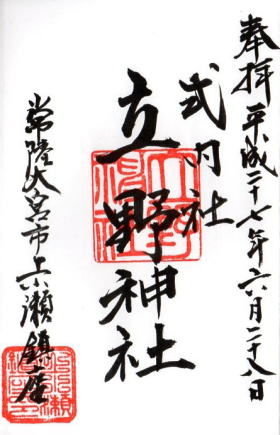 奉拝 平成二十七年六月二十八日
式内社
立野神社
常陸大宮市上小瀬鎮座